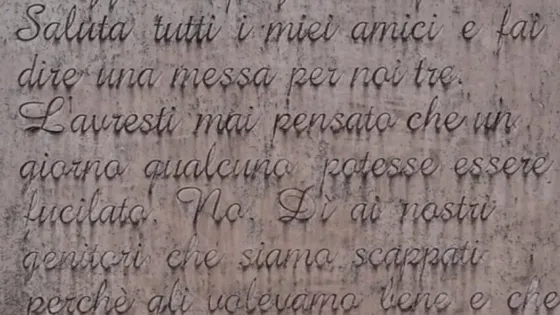 Saluta tutti i miei amici e fai
dire una messa per noi tre.
L'avresti mai pensato che un
giorno qualcuno potesse essere
fucilato. No. Di ai nostri
genitori che siamo scappati
perchè gli volevamo bene e che